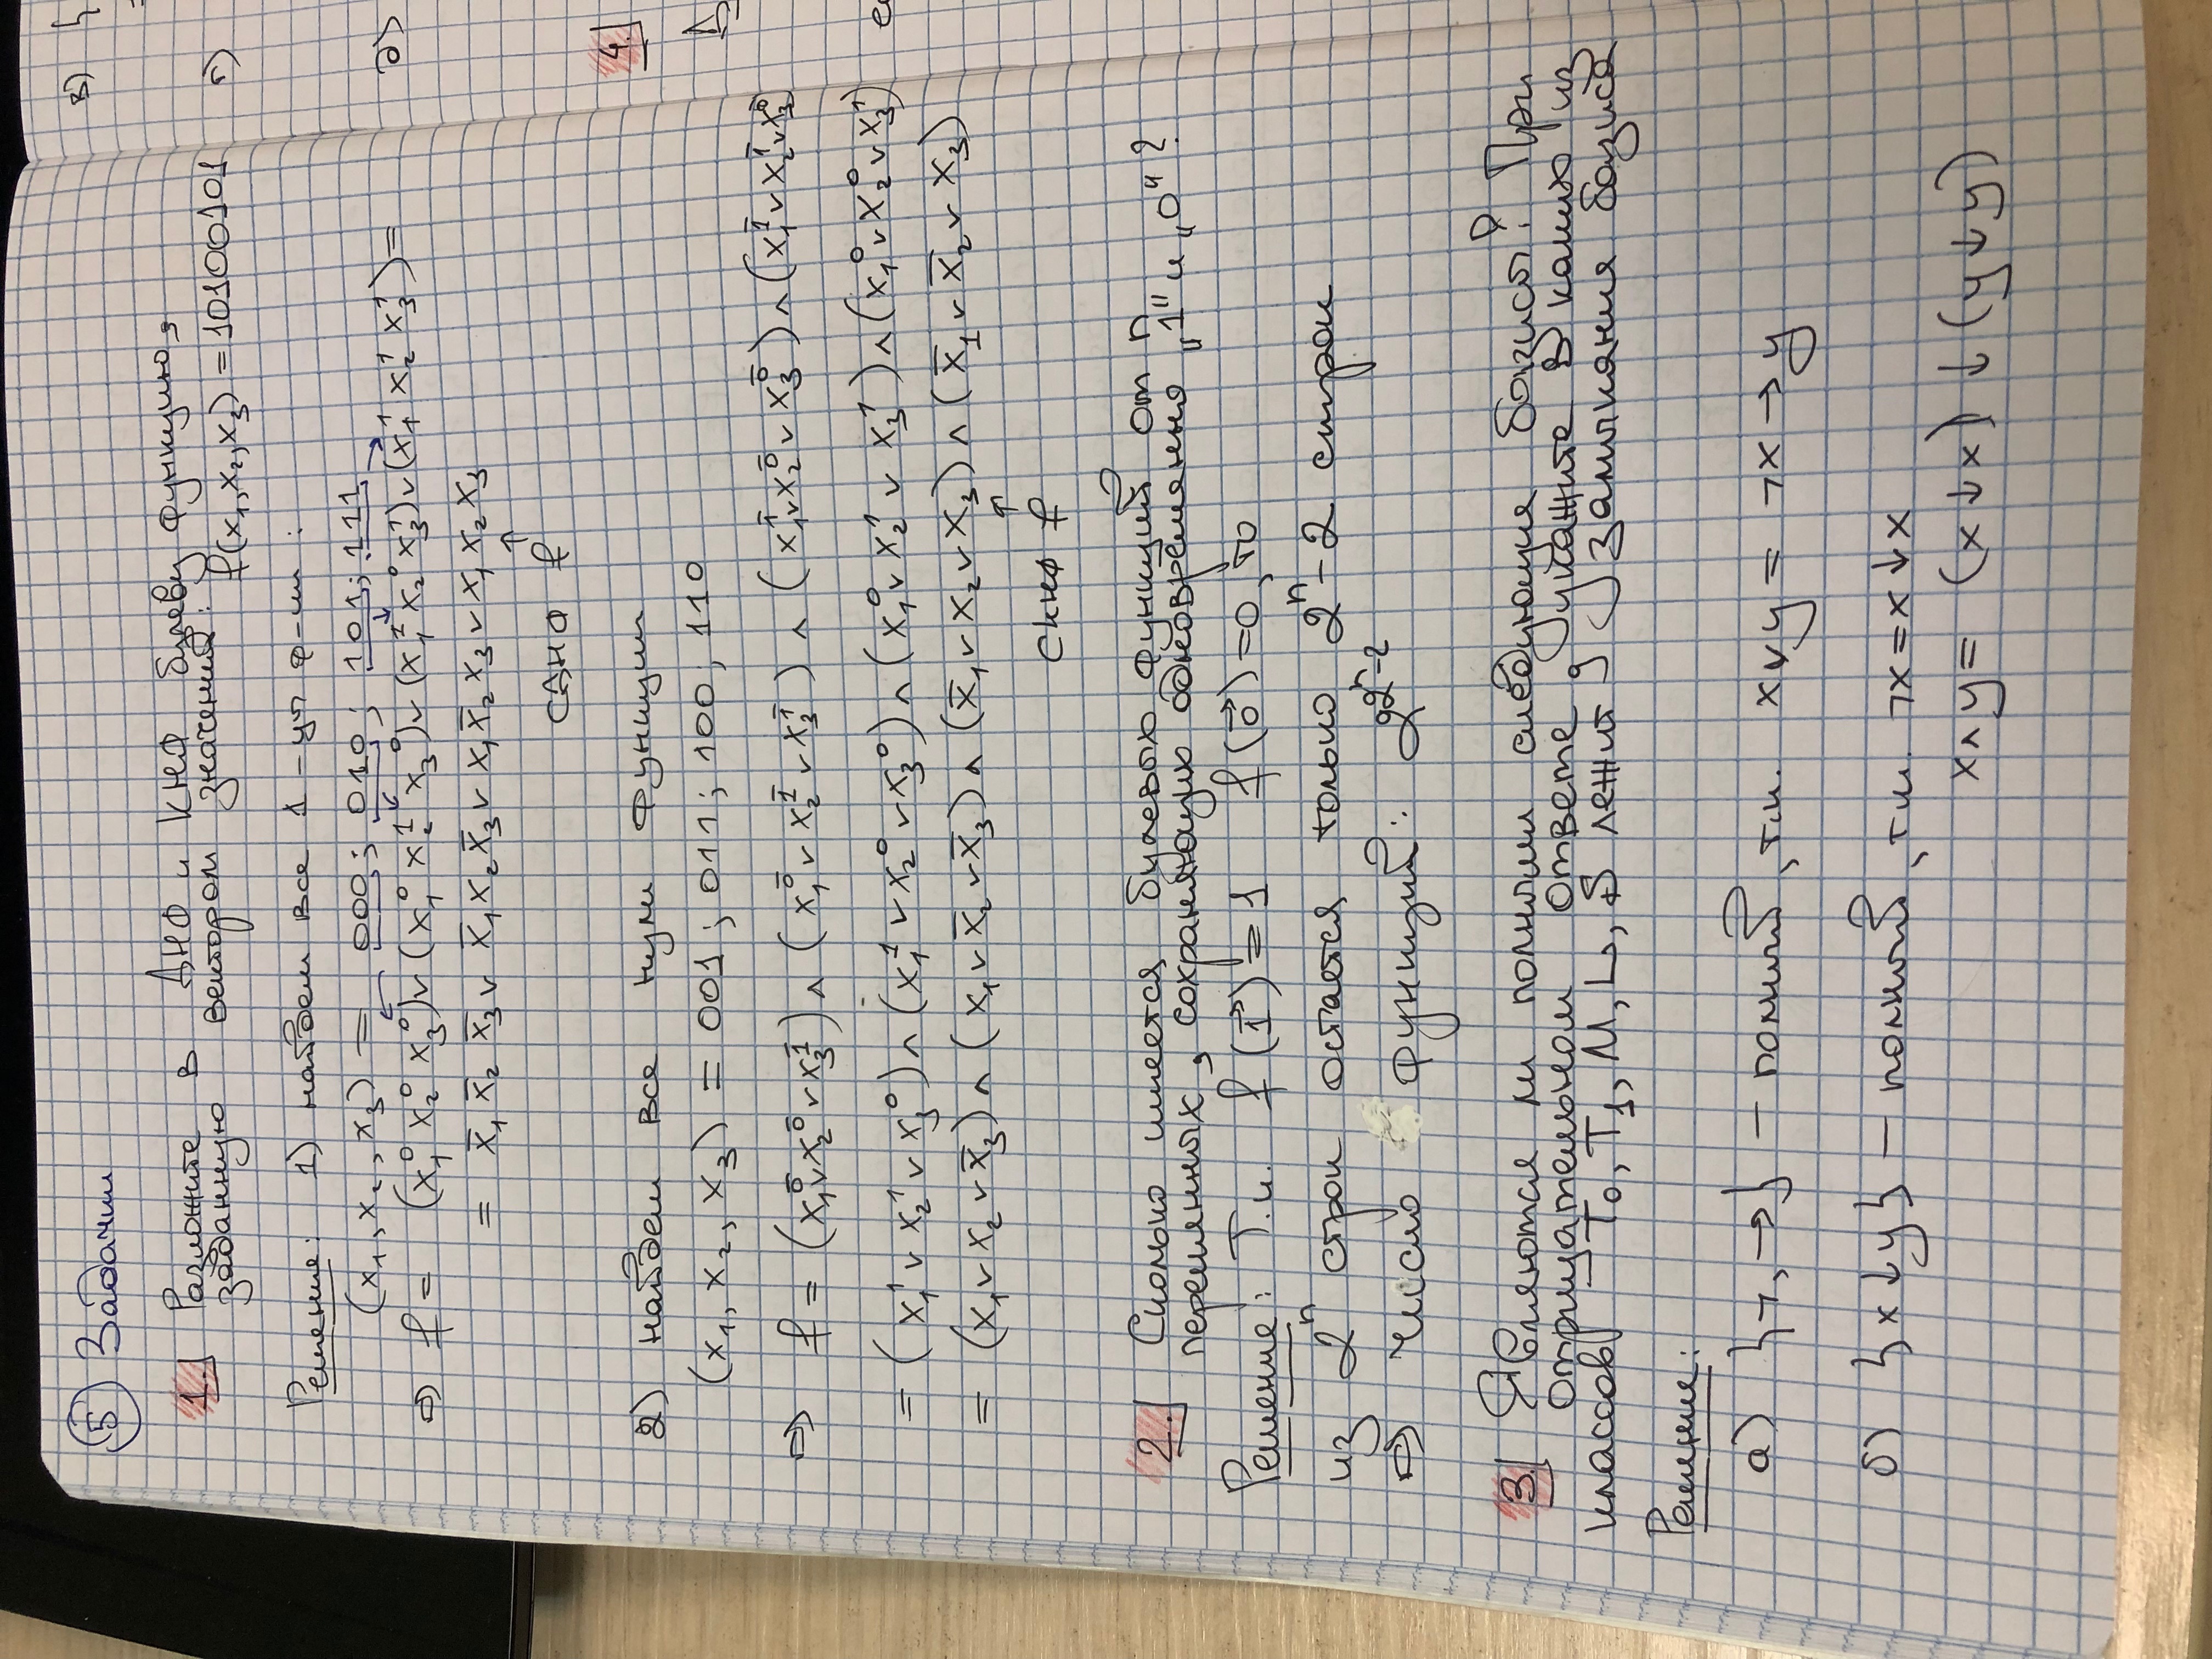 ⑤ Задачи
1. Разложите в ДНФ и КНФ булеву функцию,
заданную вектором значений: f(x₁,x₂,x₃) = 10100101
Решение: 1) найдем все 1-цы ф-ии:
(x₁,x₂,x₃) = 000; 010; 101; 111
⇒ f = (x₁⁰ x₂⁰ x₃⁰) ∨ (x₁⁰ x₂¹ x₃⁰) ∨ (x₁¹ x₂⁰ x₃¹) ∨ (x₁¹ x₂¹ x₃¹) =
= x̄₁ x̄₂ x̄₃ ∨ x̄₁ x₂ x̄₃ ∨ x₁ x̄₂ x₃ ∨ x₁ x₂ x₃
↑
СДНФ f
2) найдем все нули функции
(x₁, x₂, x₃) = 001; 011; 100; 110
⇒ f = (x₁^0̄ ∨ x₂^0̄ ∨ x₃^1̄) ∧ (x₁^0̄ ∨ x₂^1̄ ∨ x₃^1̄) ∧ (x₁^1̄ ∨ x₂^0̄ ∨ x₃^0̄) ∧ (x₁^1̄ ∨ x₂^1̄ ∨ x₃^0̄)
= (x₁¹ ∨ x₂¹ ∨ x₃⁰) ∧ (x₁¹ ∨ x₂⁰ ∨ x₃⁰) ∧ (x₁⁰ ∨ x₂¹ ∨ x₃¹) ∧ (x₁⁰ ∨ x₂⁰ ∨ x₃¹)
= (x₁ ∨ x₂ ∨ x̄₃) ∧ (x₁ ∨ x̄₂ ∨ x̄₃) ∧ (x̄₁ ∨ x₂ ∨ x₃) ∧ (x̄₁ ∨ x̄₂ ∨ x₃)
↑
СКНФ f
2. Сколько имеется булевых функций от n
переменных, сохраняющих одновременно „1" и „0"?
Решение: Т.к. f(1⃗) = 1 f(0⃗) = 0, то
из 2ⁿ строк остается только 2ⁿ - 2 строк
⇒ Число функций: 2^(2ⁿ-2)
3. Являются ли полными следующие базисы? При
отрицательном ответе, укажите в каких из
классов T₀, T₁, M, L, S лежит замыкания базиса
Решение:
а) {¬, →} - полный, т.к. x ∨ y = ¬x → y
б) {x ↓ y} - полный, т.к. ¬x = x ↓ x
x ∧ y = (x ↓ x) ↓ (y ↓ y)
в) {
г)
д)
4.